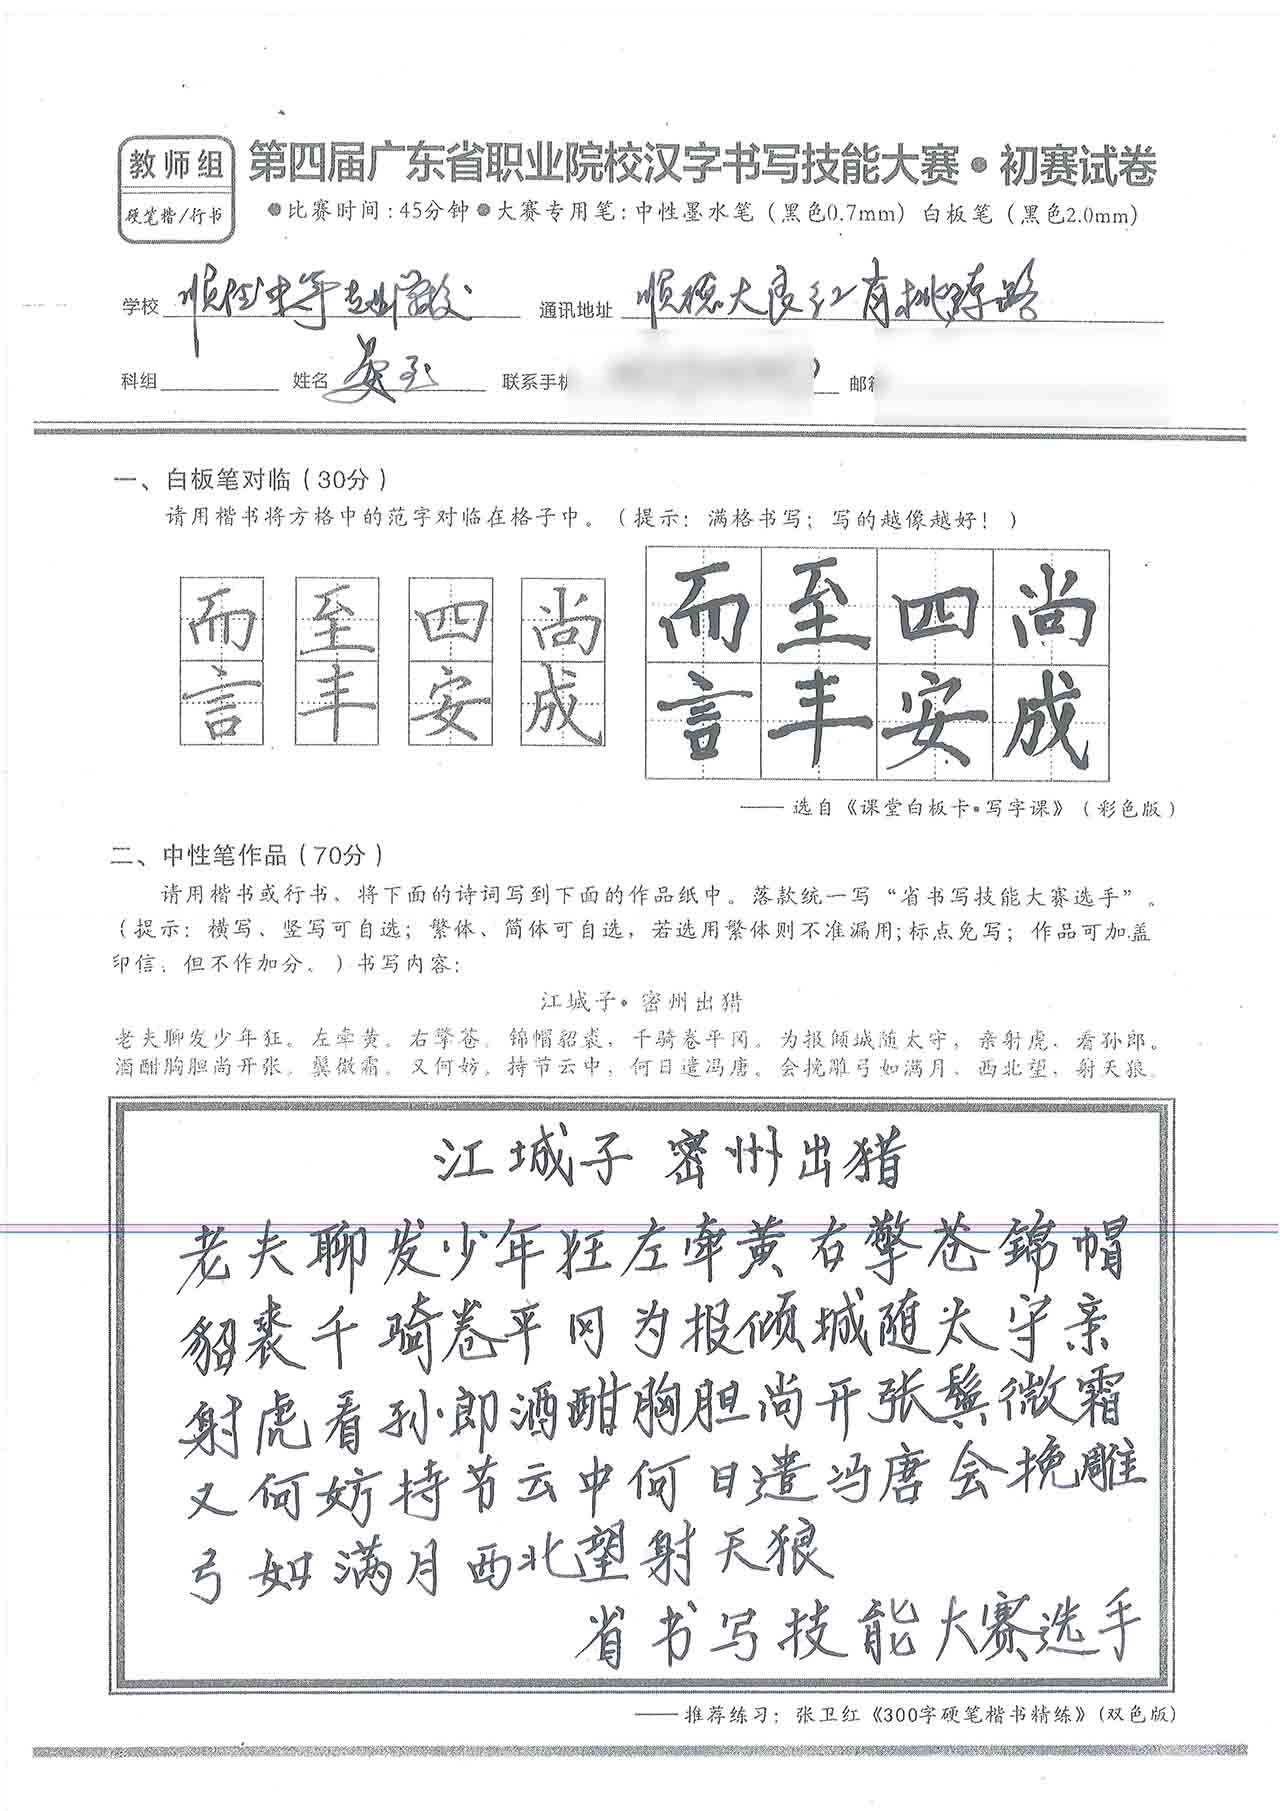 教师组
硬笔楷/行书
第四届广东省职业院校汉字书写技能大赛•初赛试卷
●比赛时间:45分钟●大赛专用笔:中性墨水笔(黑色0.7mm)白板笔(黑色2.0mm)
学校 顺德中等专业学校 通讯地址 顺德大良红岗桃源路
科组 姓名 联系手机 邮箱
一、白板笔对临(30分)
请用楷书将方格中的范字对临在格子中。(提示:满格书写;写的越像越好!)
而 至 四 尚 而 至 四 尚
言 丰 安 成 言 丰 安 成
——选自《课堂白板卡•写字课》(彩色版)
二、中性笔作品(70分)
请用楷书或行书、将下面的诗词写到下面的作品纸中。落款统一写“省书写技能大赛选手”。
(提示:横写、竖写可自选;繁体、简体可自选,若选用繁体则不准漏用;标点免写;作品可加盖
印信,但不作加分。)书写内容:
江城子•密州出猎
老夫聊发少年狂。左牵黄。右擎苍。锦帽貂裘,千骑卷平冈。为报倾城随太守,亲射虎,看孙郎。
酒酣胸胆尚开张。鬓微霜。又何妨。持节云中,何日遣冯唐。会挽雕弓如满月,西北望,射天狼。
江城子 密州出猎
老夫聊发少年狂左牵黄右擎苍锦帽
貂裘千骑卷平冈为报倾城随太守亲
射虎看孙郎酒酣胸胆尚开张鬓微霜
又何妨持节云中何日遣冯唐会挽雕
弓如满月西北望射天狼
省书写技能大赛选手
——推荐练习:张卫红《300字硬笔楷书精练》(双色版)